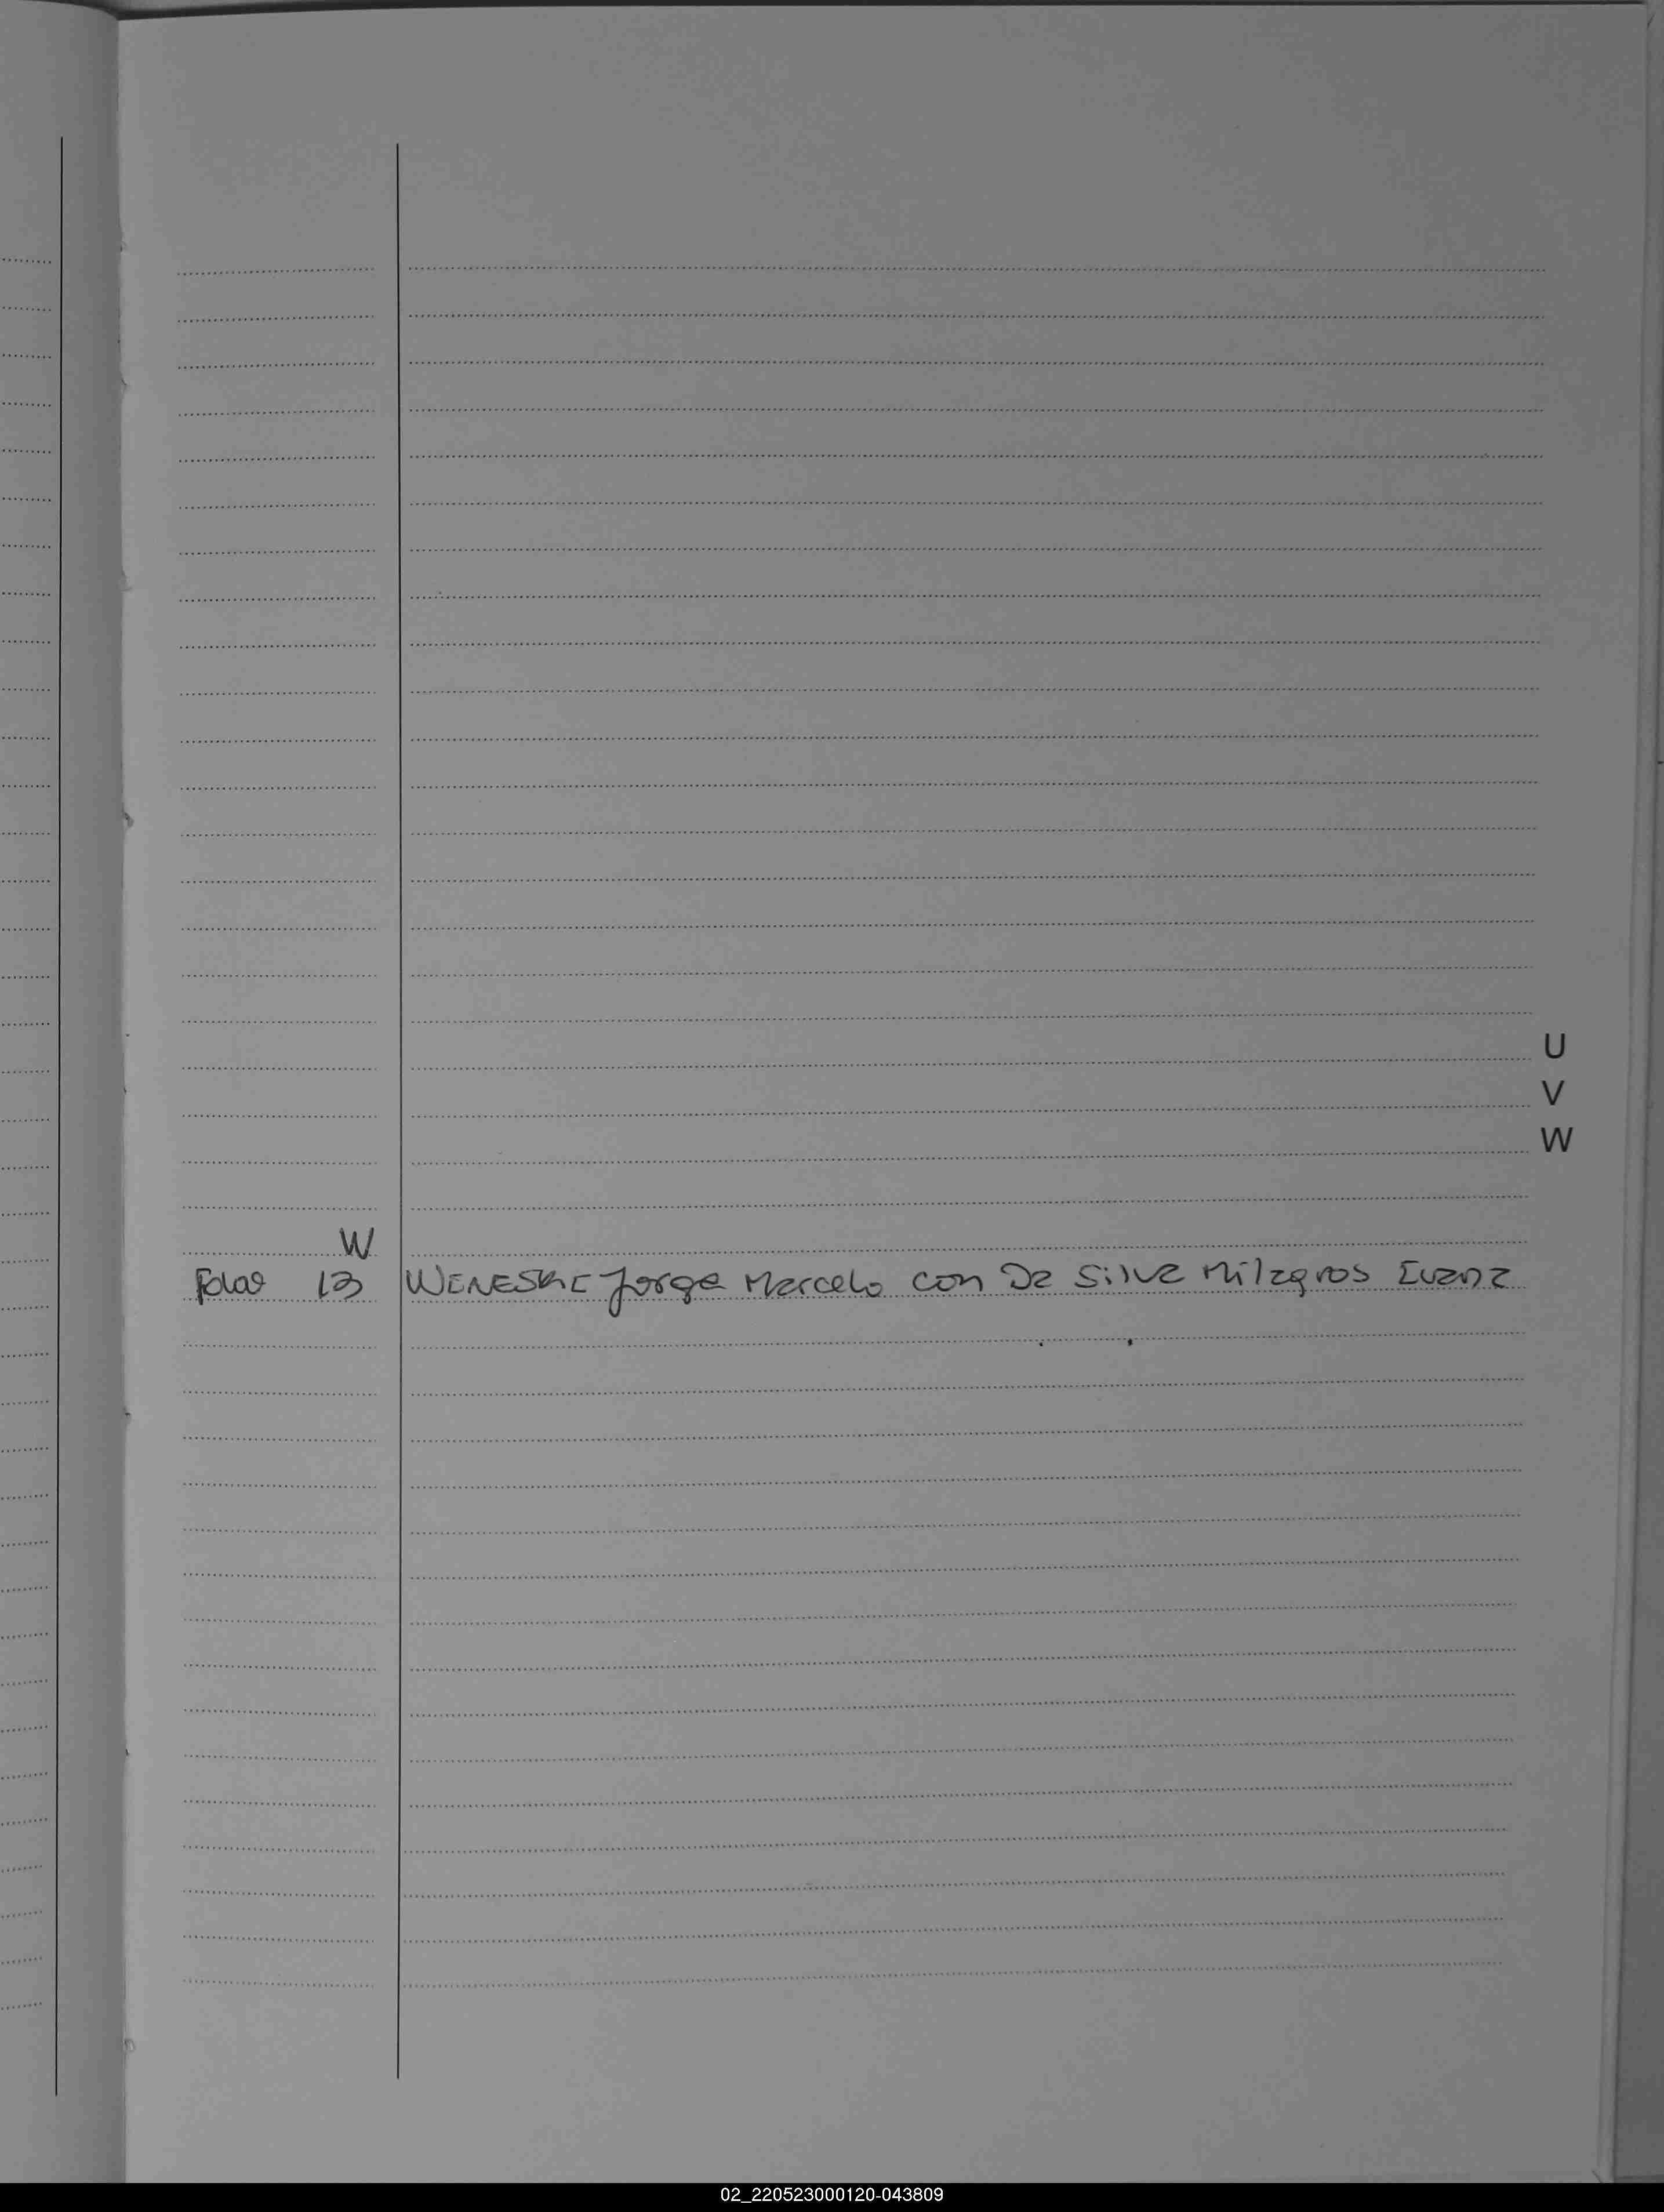 U
V
W
W
Folio 13 WENESKE Jorge Marcelo con Da Silva Milagros Evana
02_220523000120-043809